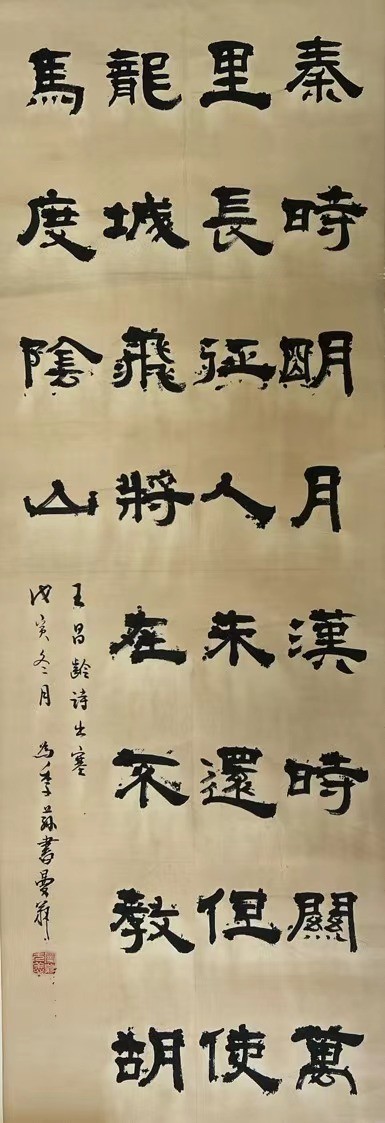 秦時明月漢時關萬
里長征人未還但使
龍城飛將在不教胡
馬度陰山
王昌齡詩出塞
戊寅冬月 為季 書